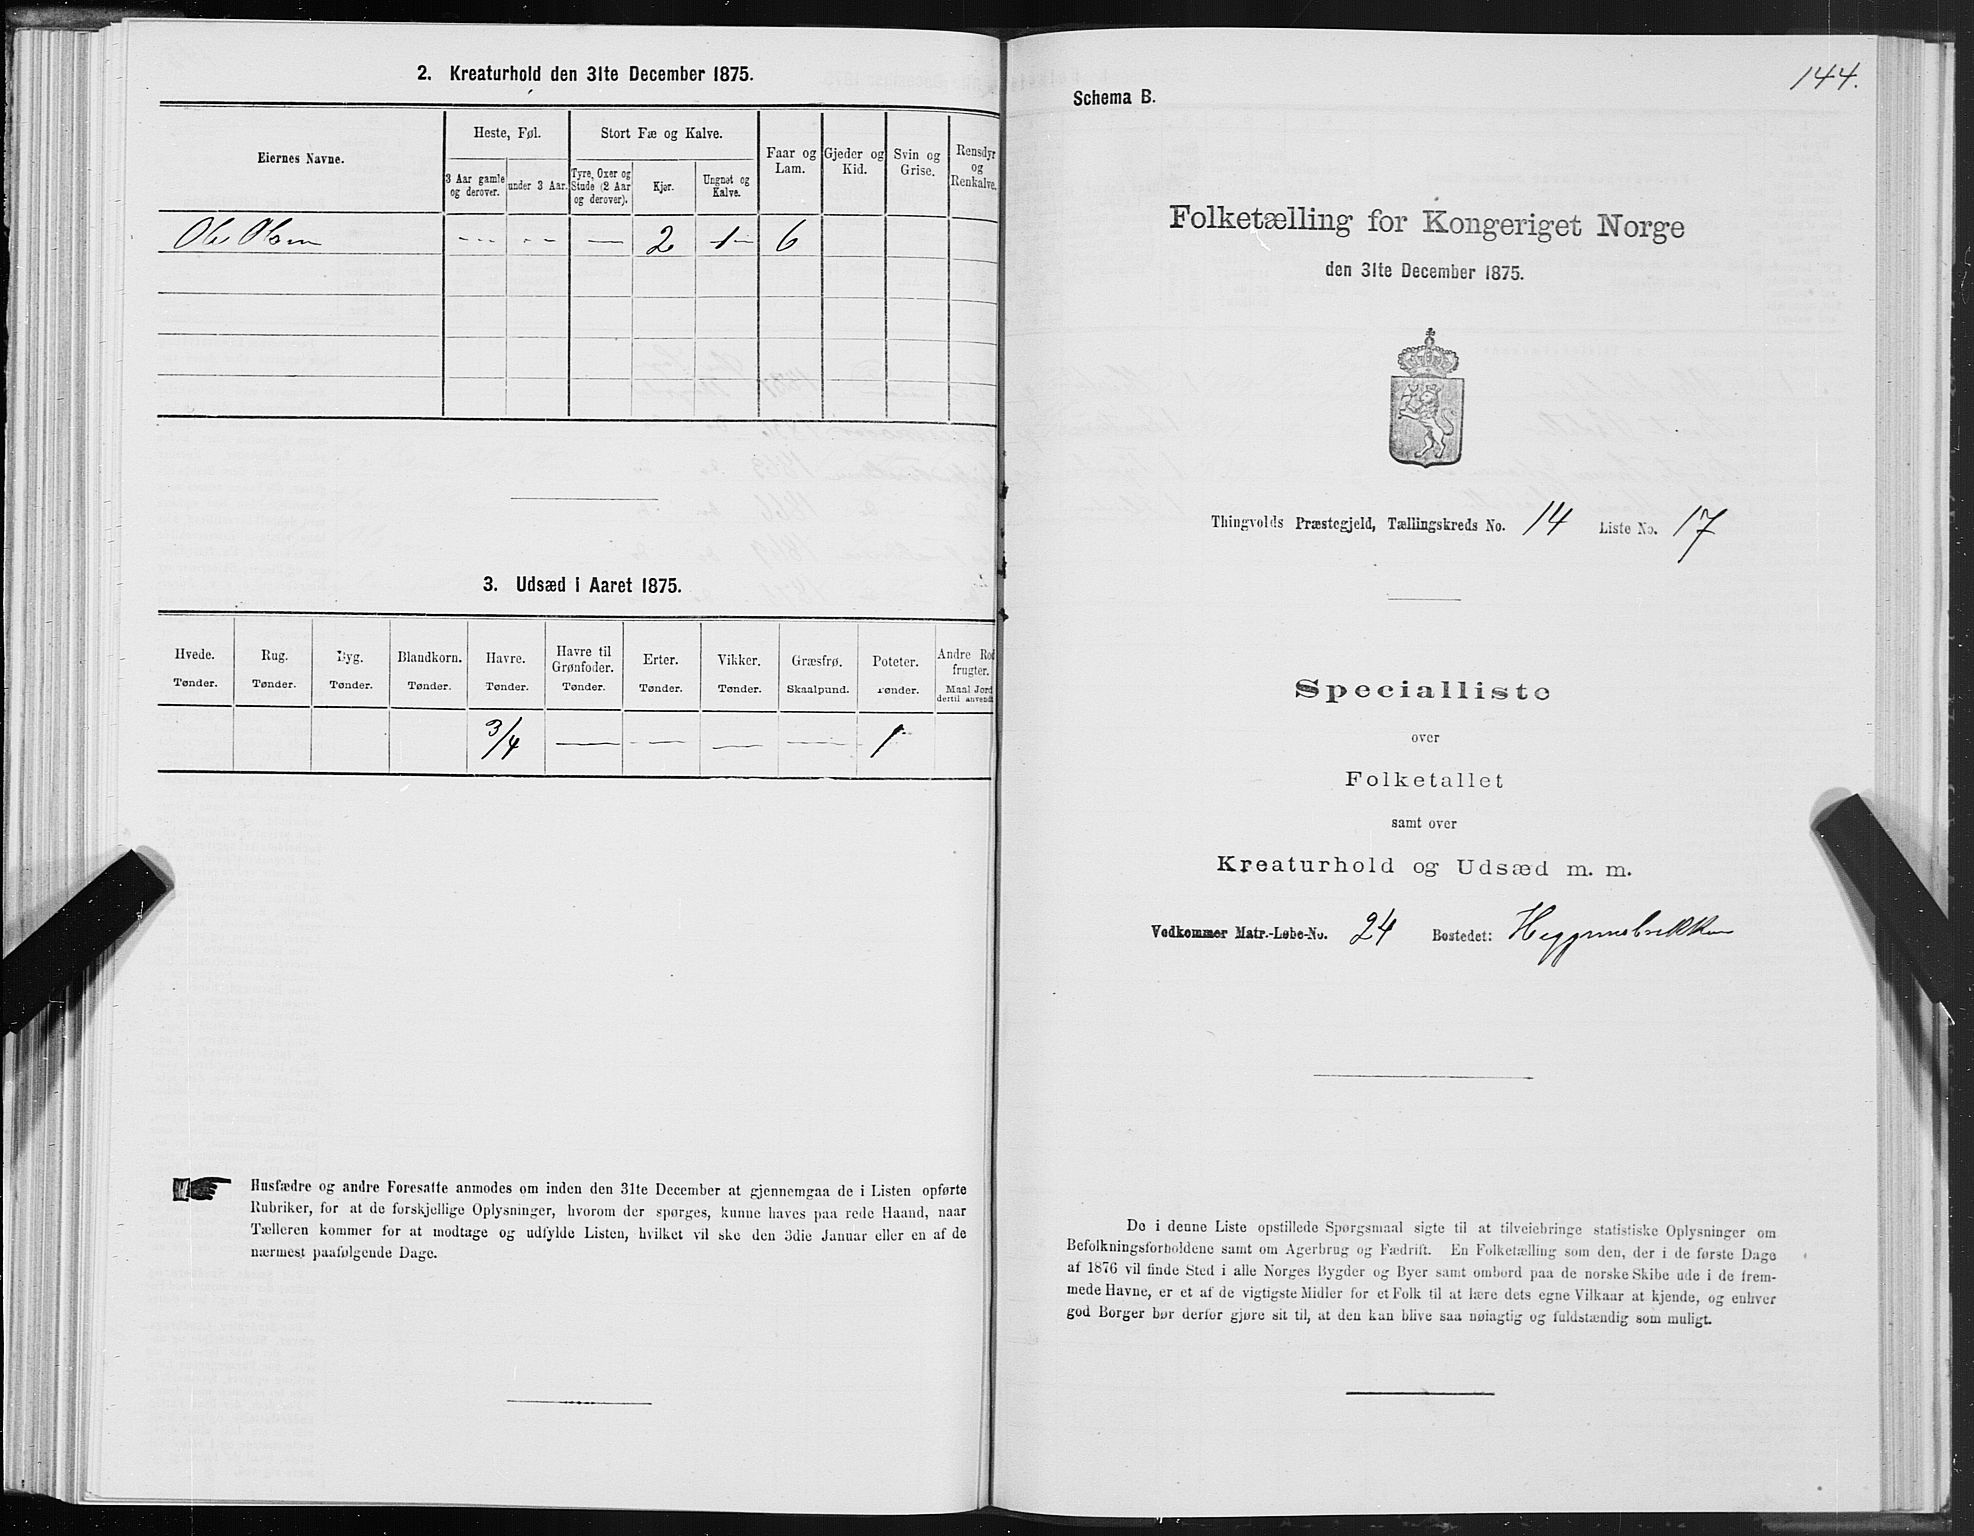 2. Kreaturhold den 31te December 1875.
Eiernes Navne.
Heste, Føl.
Stort Fæ og Kalve.
3 Aar gamle og derover.
under 3 Aar.
Tyre, Oxer og Stude (2 Aar og derover).
Kjør.
Ungnøt og Kalve.
Faar og Lam.
Gjeder og Kid.
Svin og Grise.
Rensdyr og Renkalve.
Ole Olsen --- -- — 2 1 6
3. Udsæd i Aaret 1875.
Hvede. Tønder.
Rug. Tønder.
Byg. Tønder.
Blandkorn. Tønder.
Havre. Tønder.
Havre til Grønfoder. Tønder.
Erter. Tønder.
Vikker. Tønder.
Græsfrø. Skaalpund.
Poteter. Tønder.
Andre Rod frugter. Maal Jord dertil anvendt
3/4 — — — — 1
Husfædre og andre Foresatte anmodes om inden den 31te December at gjennemgaa de i Listen opførte
Rubriker, for at de forskjellige Oplysninger, hvorom der spørges, kunne haves paa rede Haand, naar
Tælleren kommer for at modtage og udfylde Listen, hvilket vil ske den 3die Januar eller en af de
nærmest paafølgende Dage.
144.
Schema B.
Folketælling for Kongeriget Norge
den 31te December 1875.
Thingvolds Præstegjeld, Tællingskreds No. 14 Liste No. 17
Specialliste
over
Folketallet
samt over
Kreaturhold og Udsæd m. m.
Vedkommer Matr.-Løbe-No. 24 Bostedet:
De i denne Liste opstillede Spørgsmaal sigte til at tilveiebringe statistiske Oplysninger om
Befolkningsforholdene samt om Agerbrug og Fædrift. En Folketælling som den, der i de første Dage
af 1876 vil finde Sted i alle Norges Bygder og Byer samt ombord paa de norske Skibe ude i de frem-
mede Havne, er et af de vigtigste Midler for et Folk til at lære dets egne Vilkaar at kjende, og enhver
god Borger bør derfor gjøre sit til, at den kan blive saa nøiagtig og fuldstændig som muligt.